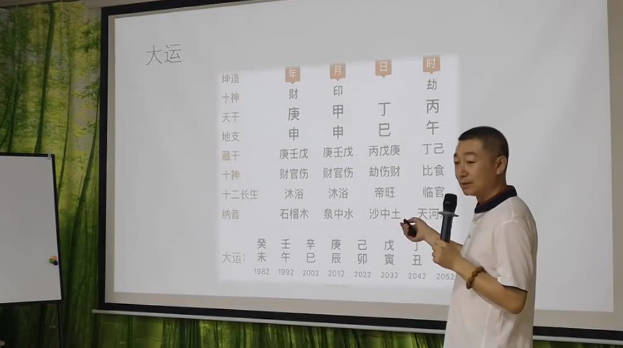 大运
坤造 年 月 日 时
十神 财 印 劫
天干 庚 甲 丁 丙
地支 申 申 巳 午
藏干 庚壬戊 庚壬戊 丙戊庚 丁己
十神 财官伤 财官伤 劫伤财 比食
十二长生 沐浴 沐浴 帝旺 临官
纳音 石榴木 泉中水 沙中土 天河
癸 壬 辛 庚 己 戊 丁
大运: 未 午 巳 辰 卯 寅 丑
1982 1992 2002 2012 2022 2032 2042 2052